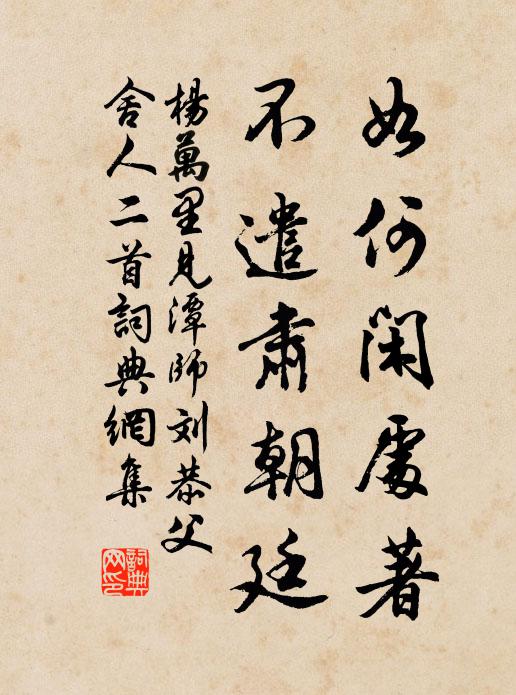 如何閑處著
不遣肅朝廷
楊萬里見潭師刘恭父
舍人二首詞典網集
詞典网印